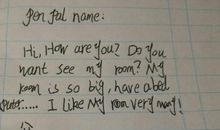 Pen Pal name:
Hi, How are you? Do you
want see my room? My
room is so big, have a bed
..... I like My room very many!